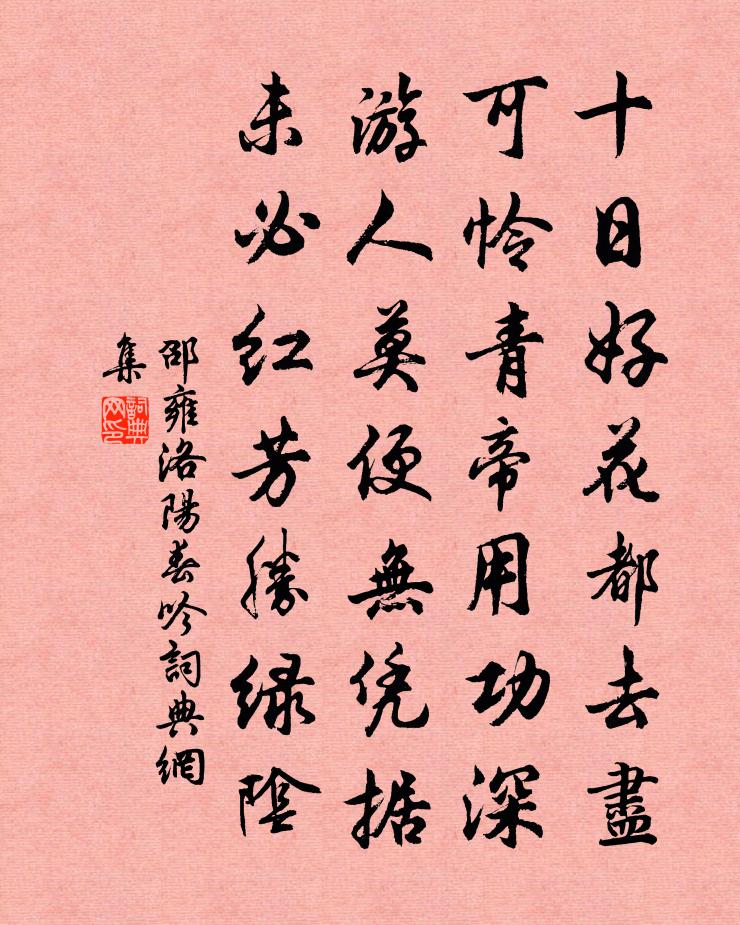 十日好花都去盡
可怜青帝用功深
游人莫便無凭据
未必红芳勝绿陰
邵雍洛陽春吟詞典網
集
詞典
网印